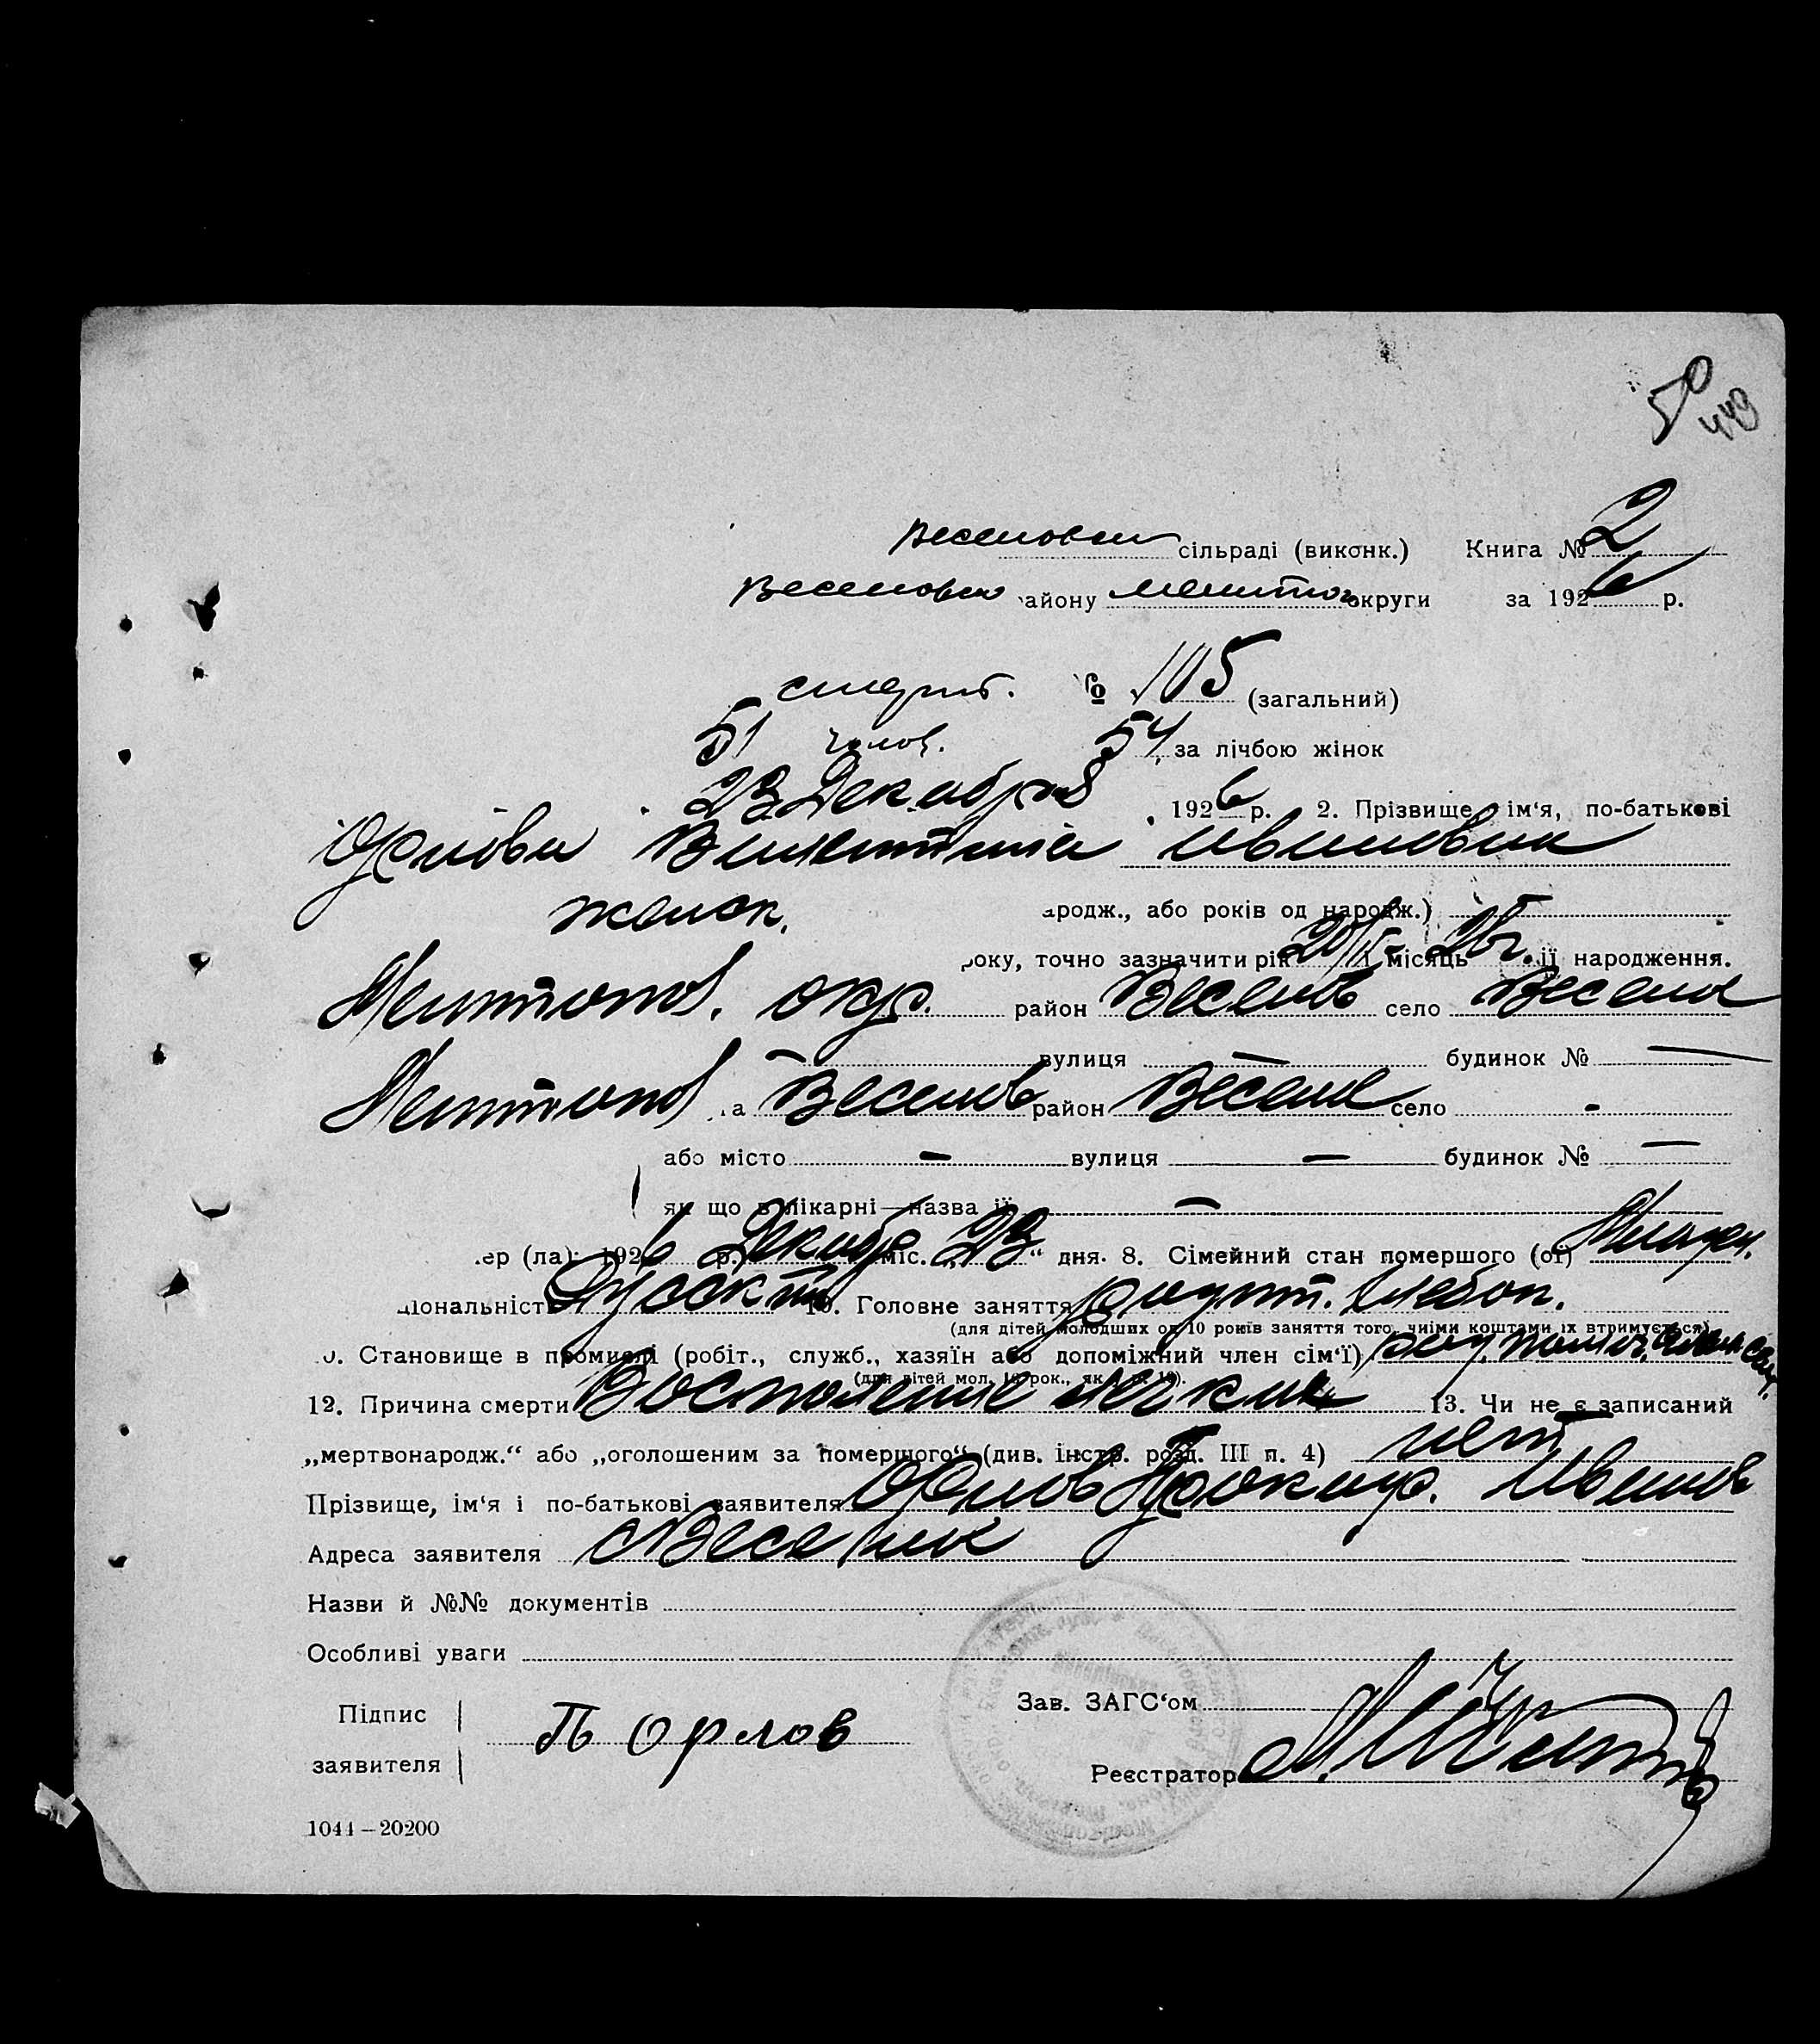 50
449
Веселовск сільраді (виконк.) Книга № 2
Веселовск айону Мелитоп округи за 1926 р.
смерт. № 105 (загальний)
51 чолов. 54 за лічбою жінок
23 Декабря 1926 р. 2. Прізвище, ім‘я, по-батькові
Орлова Валентина Ивановна
женск. ародж., або років од народж.)
року, точно зазначити рік місяць її народження.
Мелитопол. окр. район Веселов село Веселое
вулиця — будинок № —
Мелитопол на Веселов район Веселое село -
або місто — вулиця — будинок № —
як що в лікарні—назва її —
ер (ла): 1926 р. Декабр міс. „23“ дня. 8. Сімейний стан помершого (ої) Младен.
ціональність Русск 10. Головне заняття родит. хлебоп.
(для дітей молодших од 10 років заняття того, чиїми коштами їх втримується)
0. Становище в промислі (робіт., служб., хазяїн або допоміжний член сім‘ї) род. помог. член сем.
(для дітей мол. 10 рок., як п. 10).
12. Причина смерти Воспаление легких 13. Чи не є записаний
„мертвонародж.“ або „оголошеним за помершого“ (див. інстр. розд. III п. 4) нет
Прізвище, ім‘я і по-батькові заявителя Орлов Прокоф. Иванов
Адреса заявителя Веселое
Назви й №№ документів
Особливі уваги
Підпис
заявителя
П Орлов
Зав. ЗАГС‘ом
Реєстратор
1044—20200